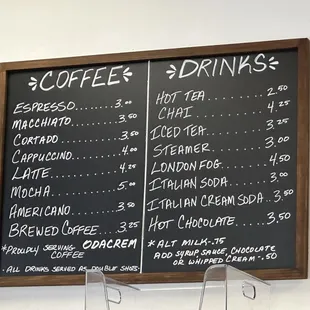 COFFEE
ESPRESSO........3.00
MACCHIATO........3.50
CORTADO........3.50
CAPPUCCINO........4.00
LATTE........4.25
MOCHA........5.00
AMERICANO........3.50
BREWED COFFEE....3.25
*PROUDLY SERVING ODACREM COFFEE
-ALL DRINKS SERVED AS DOUBLE SHOTS
DRINKS
HOT TEA........2.50
CHAI........4.25
ICED TEA........3.25
STEAMER........3.00
LONDON FOG........4.50
ITALIAN SODA......3.00
ITALIAN CREAM SODA..3.50
HOT CHOCOLATE......3.50
*ALT MILK-.75
ADD SYRUP, SAUCE, CHOCOLATE
OR WHIPPED CREAM-.50